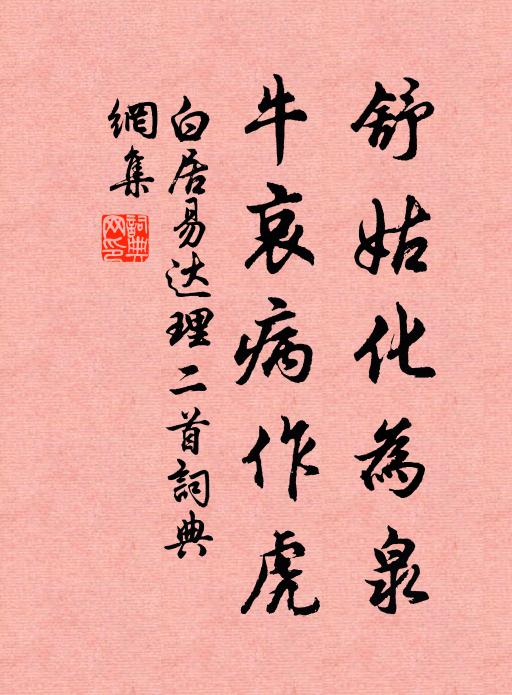 舒姑化為泉
牛哀病作虎
白居易达理二首詞典
網集
詞典
网印